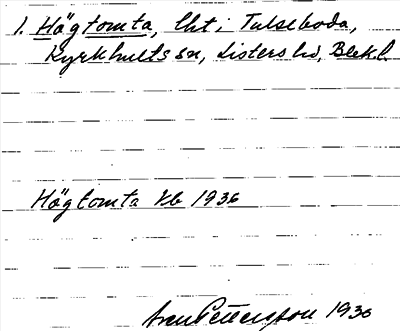 1. Högtomta, lht i Tulseboda,
Kyrkhults sn, Listers hd, Blek.l.
Högtomta Kb 1936
Pettersson 1936